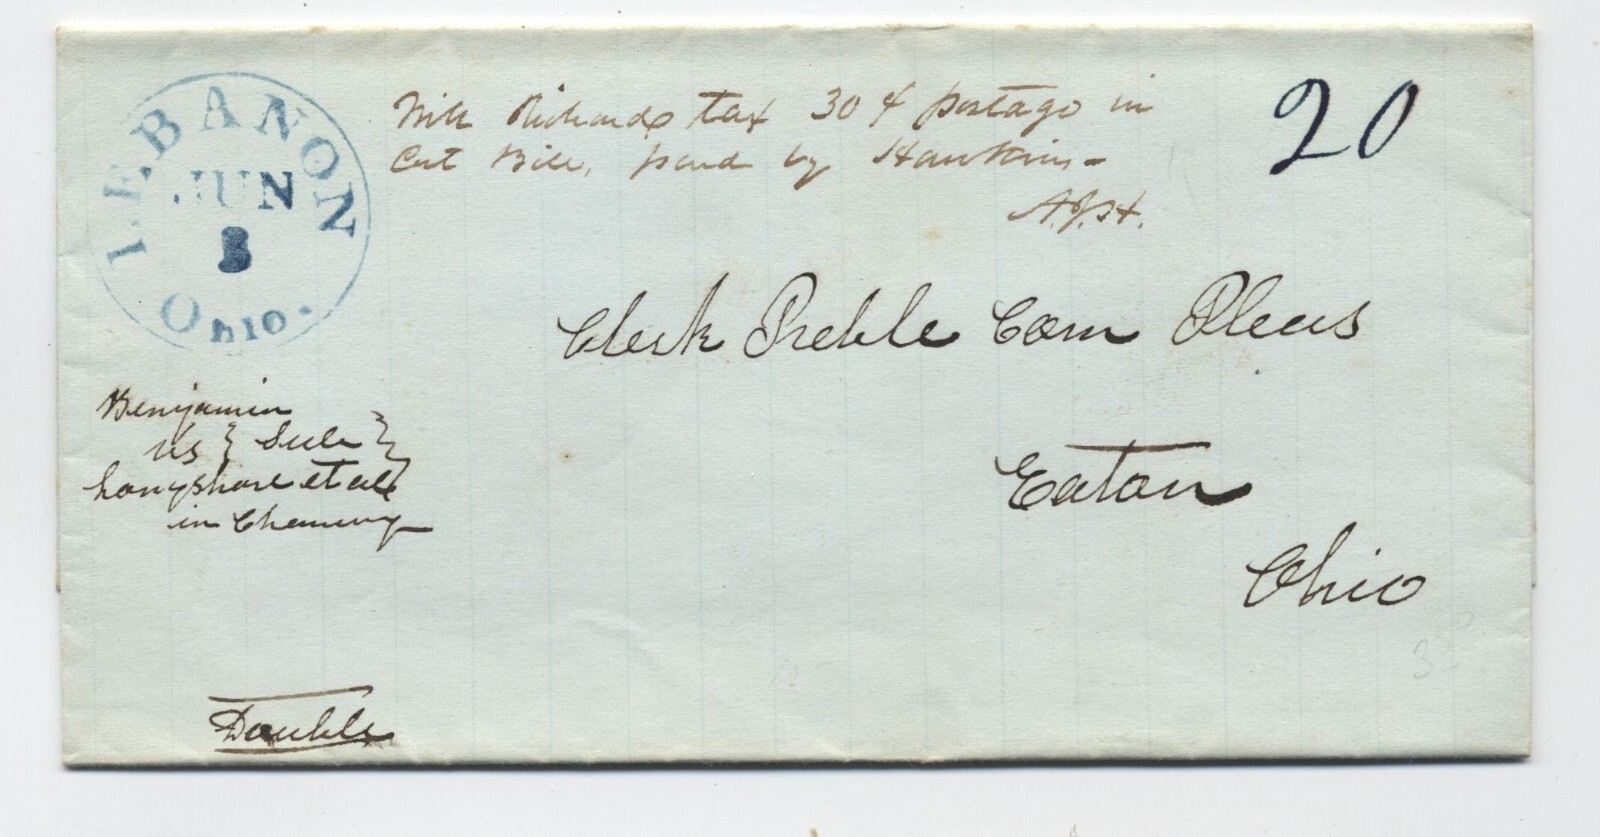 LEBANON
JUN
3
Ohio.
Will Richards tax 30 ¢ postage in
Cost Bill, paid by Hawkins-
20
Clerk Preble Com Pleas
Eaton
Ohio
Benjamin
vs } Suit
Longshore et al
in Chancery
Double